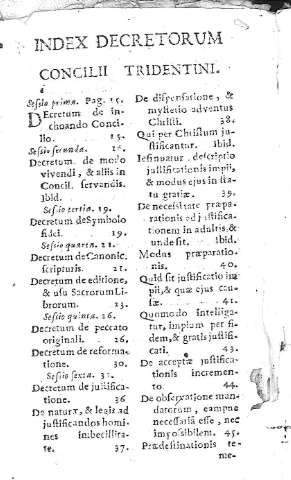 INDEX DECRETORUM
CONCILII TRIDENTINI.
Sessio prima. Pag. 15.
DEcretum de in-
choando Conci-
lio. 15.
Sessio secunda. 16.
Decretum de modo
vivendi, & aliis in
Concil. servandis.
Ibid.
Sessio tertia. 19.
Decretum de Symbolo
fidei. 19.
Sessio quarta. 21.
Decretum de Canonic.
scripturis. 21.
Decretum de editione,
& usu Sacrorum Li-
brorum. 23.
Sessio quinta. 26.
Decretum de peccato
originali. 26.
Decretum de reforma-
tione. 30.
Sessio sexta.
Decretum de justifica-
tione. 36
De naturæ, & legis ad
justificandos homi-
nes imbecillita-
te. 37.
De dispensatione, &
mysterio adventus
Christi. 38.
Qui per Christum ju-
stificantur. Ibid.
Insinuatur descriptio
justificationis impii,
& modus ejus in sta-
tu gratiæ. 39.
De necessitate præpa-
rationis ad justifica-
tionem in adultis, &
unde sit. Ibid.
Modus præparatio-
nis. 40.
Quid sit justificatio im-
pii, & quæ ejus cau-
sæ. 41.
Quomodo intelliga-
tur, impium per fi-
dem, & gratis justifi-
cari. 43.
De acceptæ justifica-
tionis incremen-
to. 44.
De observatione man-
datorum, eamque
necessariâ esse, nec
impossibilem. 45.
Prædestinationis te-
me-